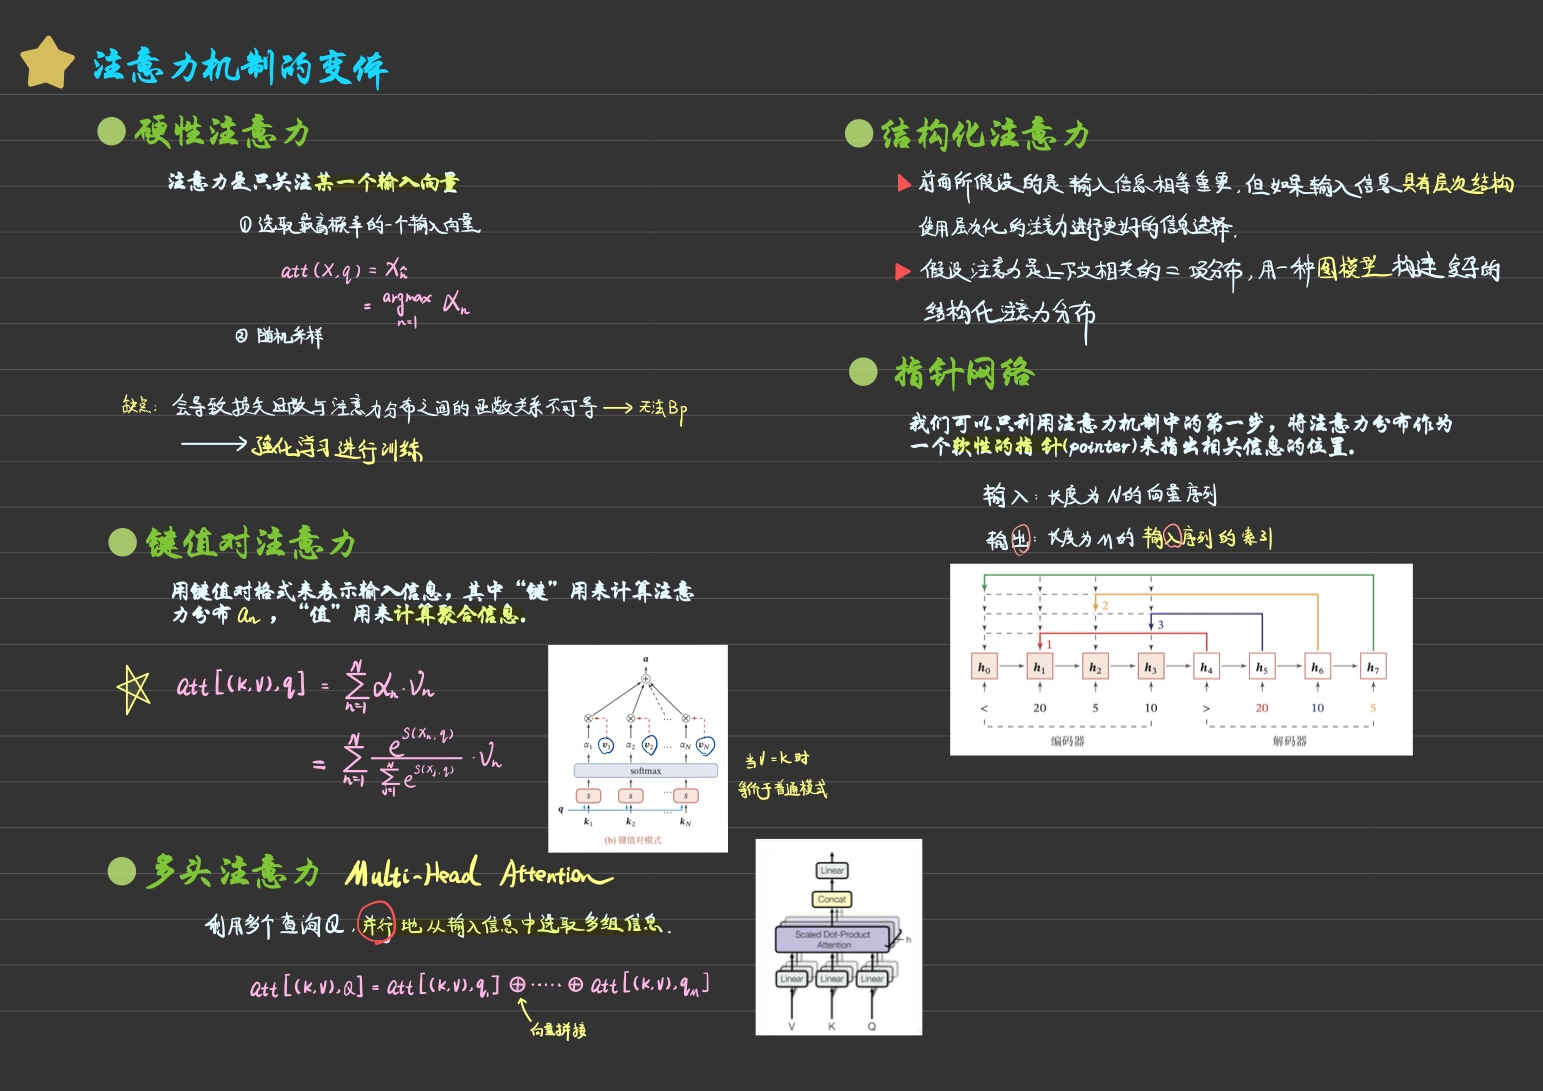 注意力机制的变体
硬性注意力
注意力是只关注某一个输入向量
① 选取最高概率的一个输入向量
att(X,q) = Xn̂
= argmax αn
n=1
② 随机采样
缺点: 会导致损失函数与注意力分布之间的函数关系不可导 → 无法Bp
→ 强化学习进行训练
键值对注意力
用键值对格式来表示输入信息，其中“键”用来计算注意
力分布 an ，“值”用来计算聚合信息。
att[(k,v),q] = Σ_{n=1}^{N} αn·Vn
= Σ_{n=1}^{N} e^{S(Xn,q)} / Σ_{j=1}^{N} e^{S(Xj,q)} · Vn
a
α1 v1 α2 v2 … αN vN
softmax
s s … s
q
k1 k2 … kN
(b) 键值对模式
当V=k时
等价于普通模式
多头注意力 Multi-Head Attention
利用多个查询Q,并行地从输入信息中选取多组信息.
att[(k,v),Q] = att[(k,v),q1] ⊕ ····· ⊕ att[(k,v),qM]
向量拼接
Linear
Concat
Scaled Dot-Product
Attention
h
Linear Linear Linear
V K Q
结构化注意力
前面所假设的是输入信息相等重要,但如果输入信息具有层次结构
使用层次化的注意力进行更好的信息选择.
假设注意力是上下文相关的二项分布,用一种图模型构建复杂的
结构化注意力分布
指针网络
我们可以只利用注意力机制中的第一步，将注意力分布作为
一个软性的指针(pointer)来指出相关信息的位置。
输入: 长度为N的向量序列
输出: 长度为M的输入序列的索引
2
3
1
h0 h1 h2 h3 h4 h5 h6 h7
< 20 5 10 > 20 10 5
编码器 解码器